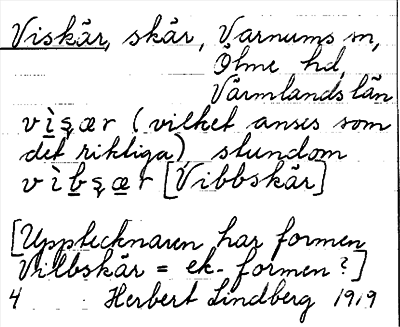 Viskär, skär, Varnums sn,
Ölme hd,
Värmlands län
vìşær (vilket anses som
det riktiga), stundom
vìbşær [Vibbskär]
[Upptecknaren har formen
Villbskär = ek-formen?]
4 Herbert Lindberg 1919